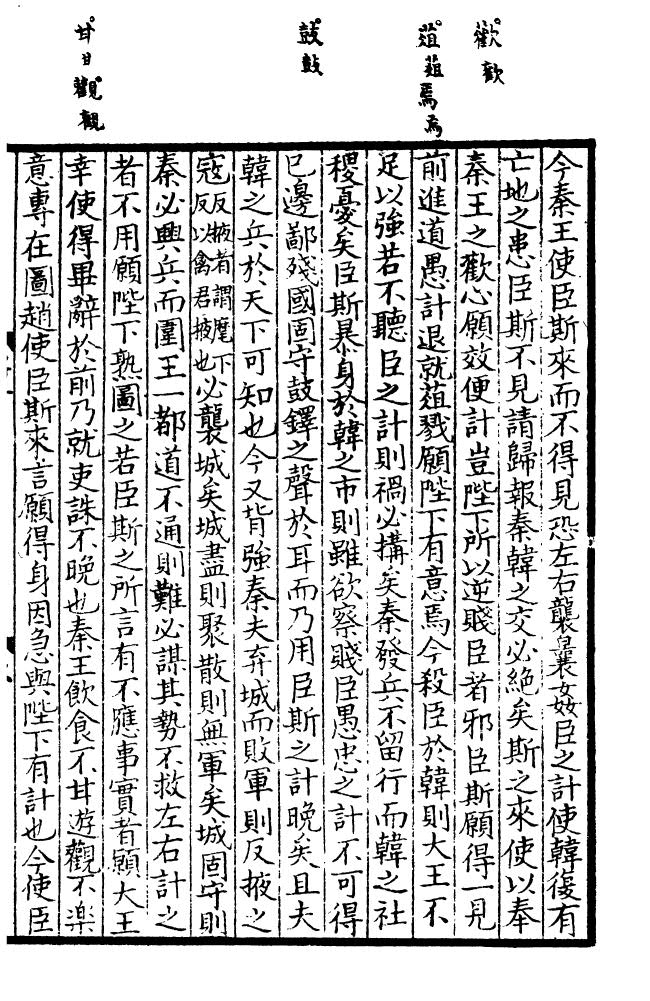 歡歡
葅葅焉焉
鼓鼓
甘日觀觀
今秦王使臣斯來而不得見恐左右襲曩姦臣之計使韓復有
亡地之患臣斯不見請歸報秦韓之交必絶矣斯之來使以奉
秦王之歡心願效便計豈陛下所以逆賤臣者邪臣斯願得一見
前進道愚計退就葅戮願陛下有意焉今殺臣於韓則大王不
足以強若不聽臣之計則禍必搆矣秦發兵不留行而韓之社
稷憂矣臣斯暴身於韓之市則雖欲察賤臣愚忠之計不可得
已邊鄙殘國固守鼓鐸之聲於耳而乃用臣斯之計晚矣且夫
韓之兵於天下可知也今又背強秦夫弃城而敗軍則反掖之
寇反掖者謂麾下反以禽君掖也必襲城矣城盡則聚散則無軍矣城固守則
秦必興兵而圍王一都道不通則難必謀其勢不救左右計之
者不用願陛下熟圖之若臣斯之所言有不應事實者願大王
幸使得畢辭於前乃就吏誅不晚也秦王飲食不甘遊觀不楽
意專在圖趙使臣斯來言願得身因急與陛下有計也今使臣